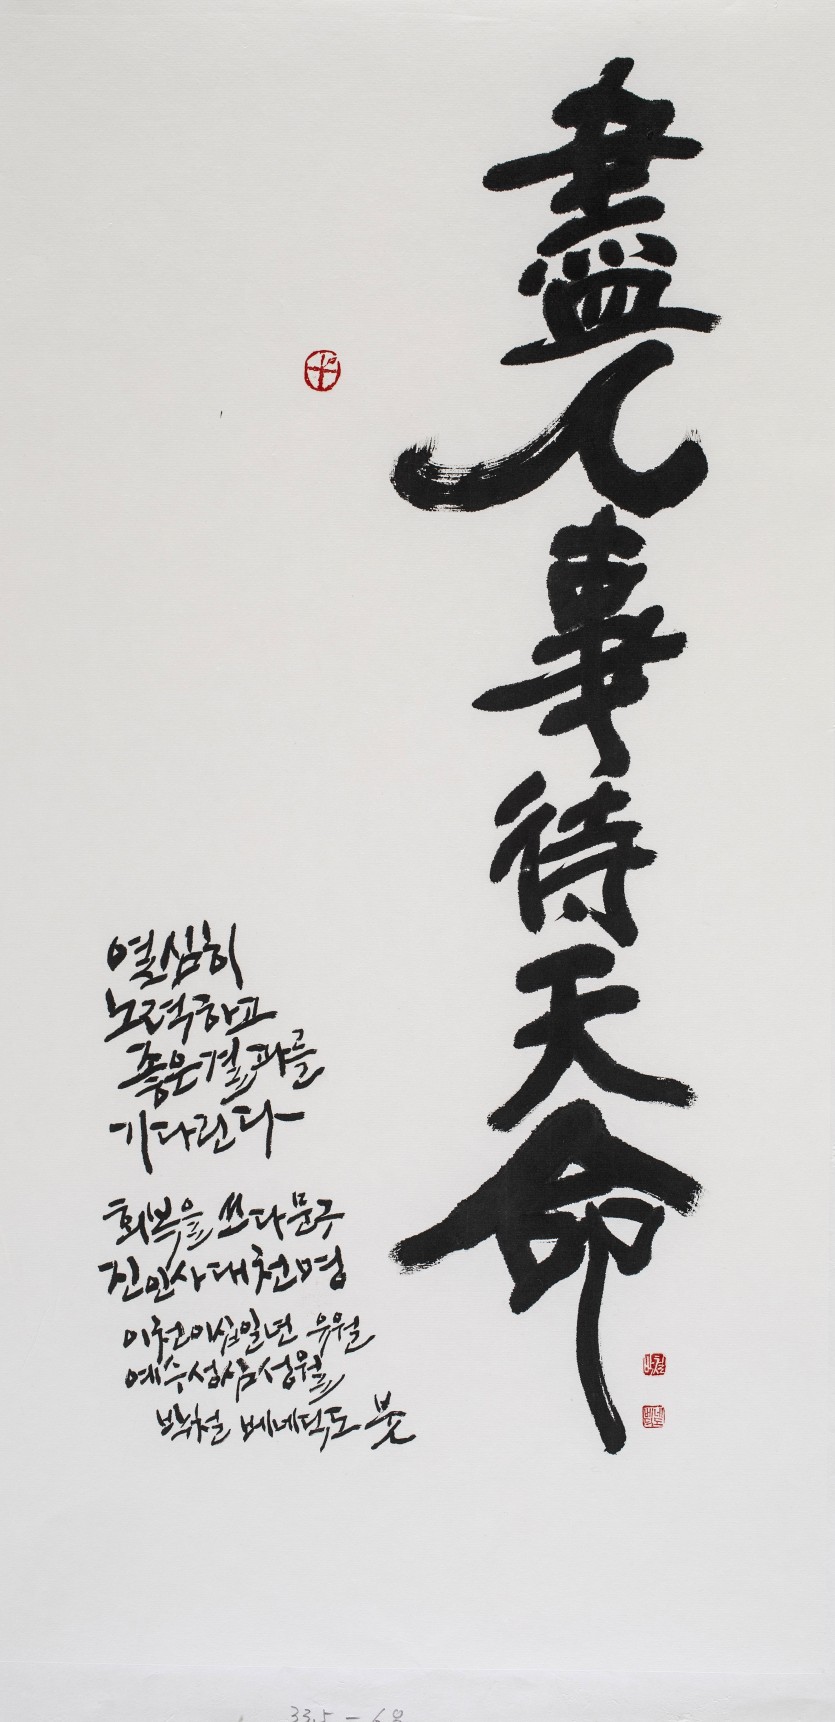 盡人事待天命
열심히
노력하고
좋은결과를
기다린다
회복을 쓰다 문구
진인사대천명
이천이십일년 유월
예수성심성월
박철 베네딕도 붓